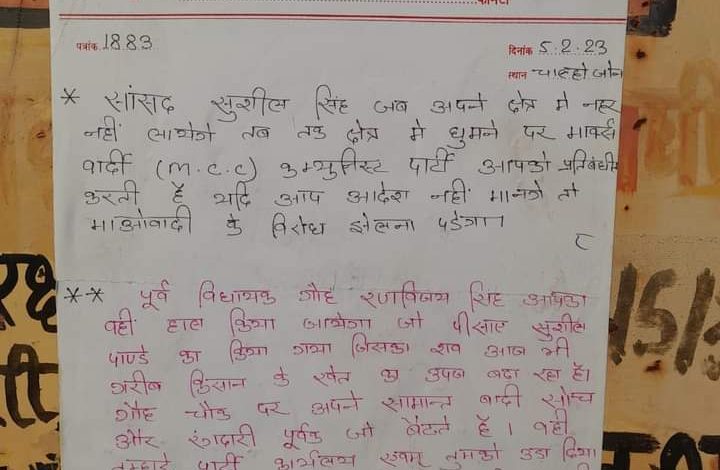 पत्रांक 1883
दिनांक 5.2.23
स्थान चाल्हो जोन
* सांसद सुशील सिंह जब अपने क्षेत्र मे नहर
नहीं लायेगे तब तक क्षेत्र मे घुमने पर मार्क्स
वादी (M.C.C) कम्युनिस्ट पार्टी आपको प्रतिबंधीत
करती है यदि आप आदेश नहीं मानगे तो
माओवादी के विरोध झेलना पडेगा।
** पूर्व विधायक गोह रणविजय सिंह आपका
वही हाल किया जायेगा जो पीसाए सुशील
पाण्डे का किया गया जिसका शव आज भी
गरीब किसान के खेत का उपज बढा रहा है।
गोह चौक पर अपने सामान्त बादी सोच
और रंगदारी पूर्वक जो बैठते है। वही
तुम्हारे पार्टी कार्यलय एवम् तुमको उडा दिया